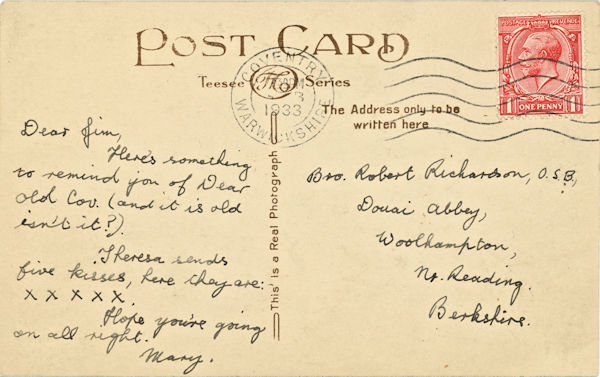 POST CARD
Teesee Series
COVENTRY
WARWICKSHIRE
1933
POSTAGE REVENUE
ONE PENNY
The Address only to be
written here
This is a Real Photograph
Dear Jim,
Here's something
to remind you of Dear
old Cov. (and it is old
isn't it?).
Theresa sends
five kisses, here they are:
X X X X X.
Hope you're going
on all right.
Mary.
Bro. Robert Richardson, O.S.B,
Douai Abbey,
Woolhampton,
Nr. Reading.
Berkshire.